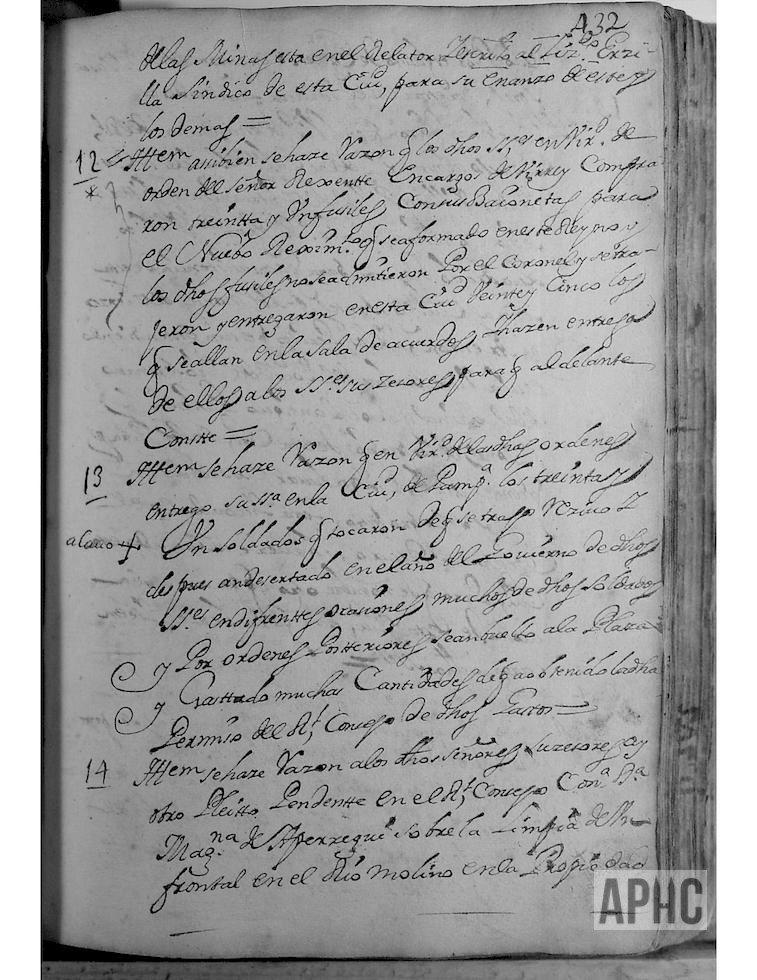 432
de las Minas esta en el Relator y escrito al Liz.do Erzi-
lla Sindico de esta Ciud, para su enanzo de este y
los demas =
12 Ittem assibien se haze Razon q los dhos SS.es en Vir.d de
*
orden del señor Rexentte Encargos de Virrey Compra
ron treintta y Un fusiles Con sus Baionetas para
el Nuebo Reximto q se a formado en este Reyno y
los dhos fusiles no se admitieron Por el Coronel y se tra-
jeron y entregaron en esta Ciud Veinte y Cinco los
q se allan en la Sala de acuerdos y hazen entrego
de ellos a los SS.es suzesores para q al delante
Constte =
13 Ittem se haze Razon q en Vir.d de las dhas ordenes
entrego su ss.a en la Ciud, de Pamp.a los treinta y
Un soldados q tocaron de q se trajo Rezivo I
despues an desertado en el año del Govierno de dhos
SS.es en difrenttes ocasiones muchos de dhos soldados
y Por ordenes Posteriores se an buelto a la Plaza
y Gasttado muchas Cantidades de q a obtenido la dha
Permiso del Rl, Consejo de dhos Gastos =
14 Ittem se haze Razon a los dhos señores suzesores ay
otro Pleitto Pendentte en el Rl, Consejo Con.a D.a
Mag.na de Aperregui sobre la Limpia de Vn
frontal en el Rio molino en la Propiedad
APHC